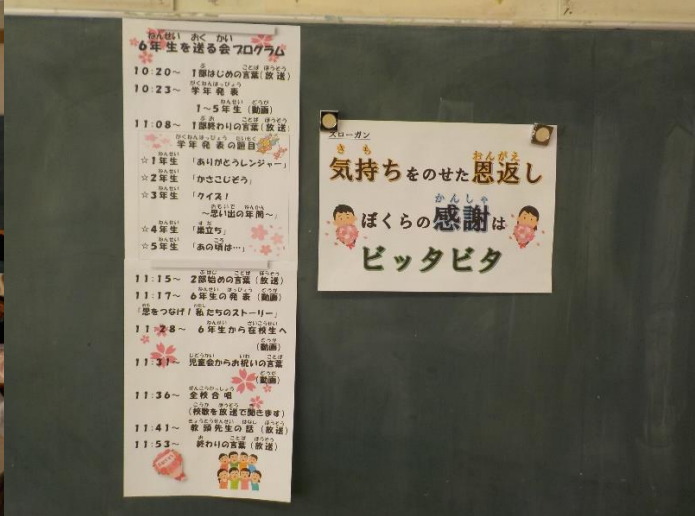 6年生を送る会プログラム
10:20～ 1部はじめの言葉(放送)
10:23～ 学年発表
1～5年生(動画)
11:08～ 1部終わりの言葉(放送)
学年発表の題目
☆1年生 「ありがとうレンジャー」
☆2年生 「かさこじぞう」
☆3年生 「クイズ!
～思い出の年間～」
☆4年生 「巣立ち」
☆5年生 「あの頃は…」
11:15～ 2部始めの言葉(放送)
11:17～ 6年生の発表(動画)
「思をつなげ!私たちのストーリー」
11:28～ 6年生から在校生へ
(動画)
11:31～ 児童会からお祝いの言葉
(動画)
11:36～ 全校合唱
(校歌を放送で聞きます)
11:41～ 教頭先生の話(放送)
11:53～ 終わりの言葉(放送)
スローガン
気持ちをのせた恩返し
ぼくらの感謝は
ビッタビタ